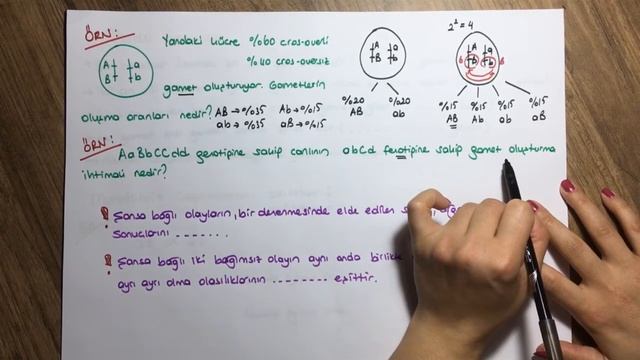 ÖRN:
Yandaki hücre %60 cros-overli
%40 cros-oversiz
gamet oluşturuyor. Gametlerin
oluşma oranları nedir? AB → %35 Ab → %15
ab → %35 aB → %15
A a
B b
A a
B b
%20 %20
AB ab
2² = 4
A a
B b b B
%15 %15 %15 %15
AB Ab ab aB
ÖRN:
AaBbCCdd genotipine sahip canlının abCd fenotipine sahip gamet oluşturma
ihtimali nedir?
! Şansa bağlı olayların, bir denenmesinde elde edilen
sonuçlarını .......
! Şansa bağlı iki bağımsız olayın aynı anda birlikte
ayrı ayrı olma olasılıklarının ......... eşittir.